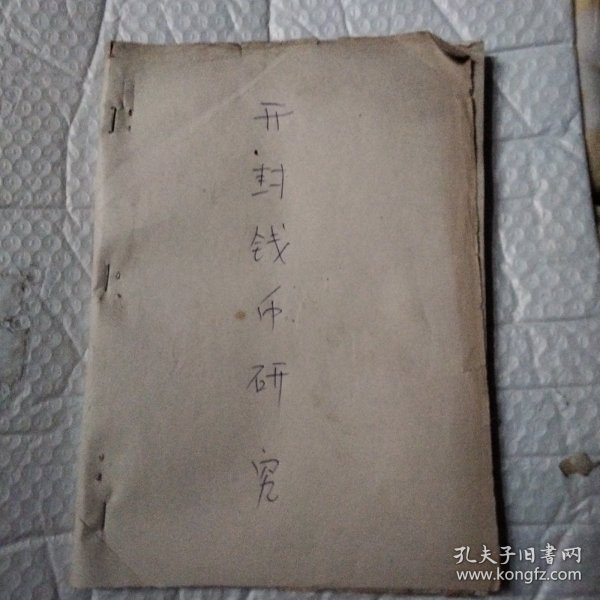 开封钱币研究
孔夫子旧書网
www.kongfz.com